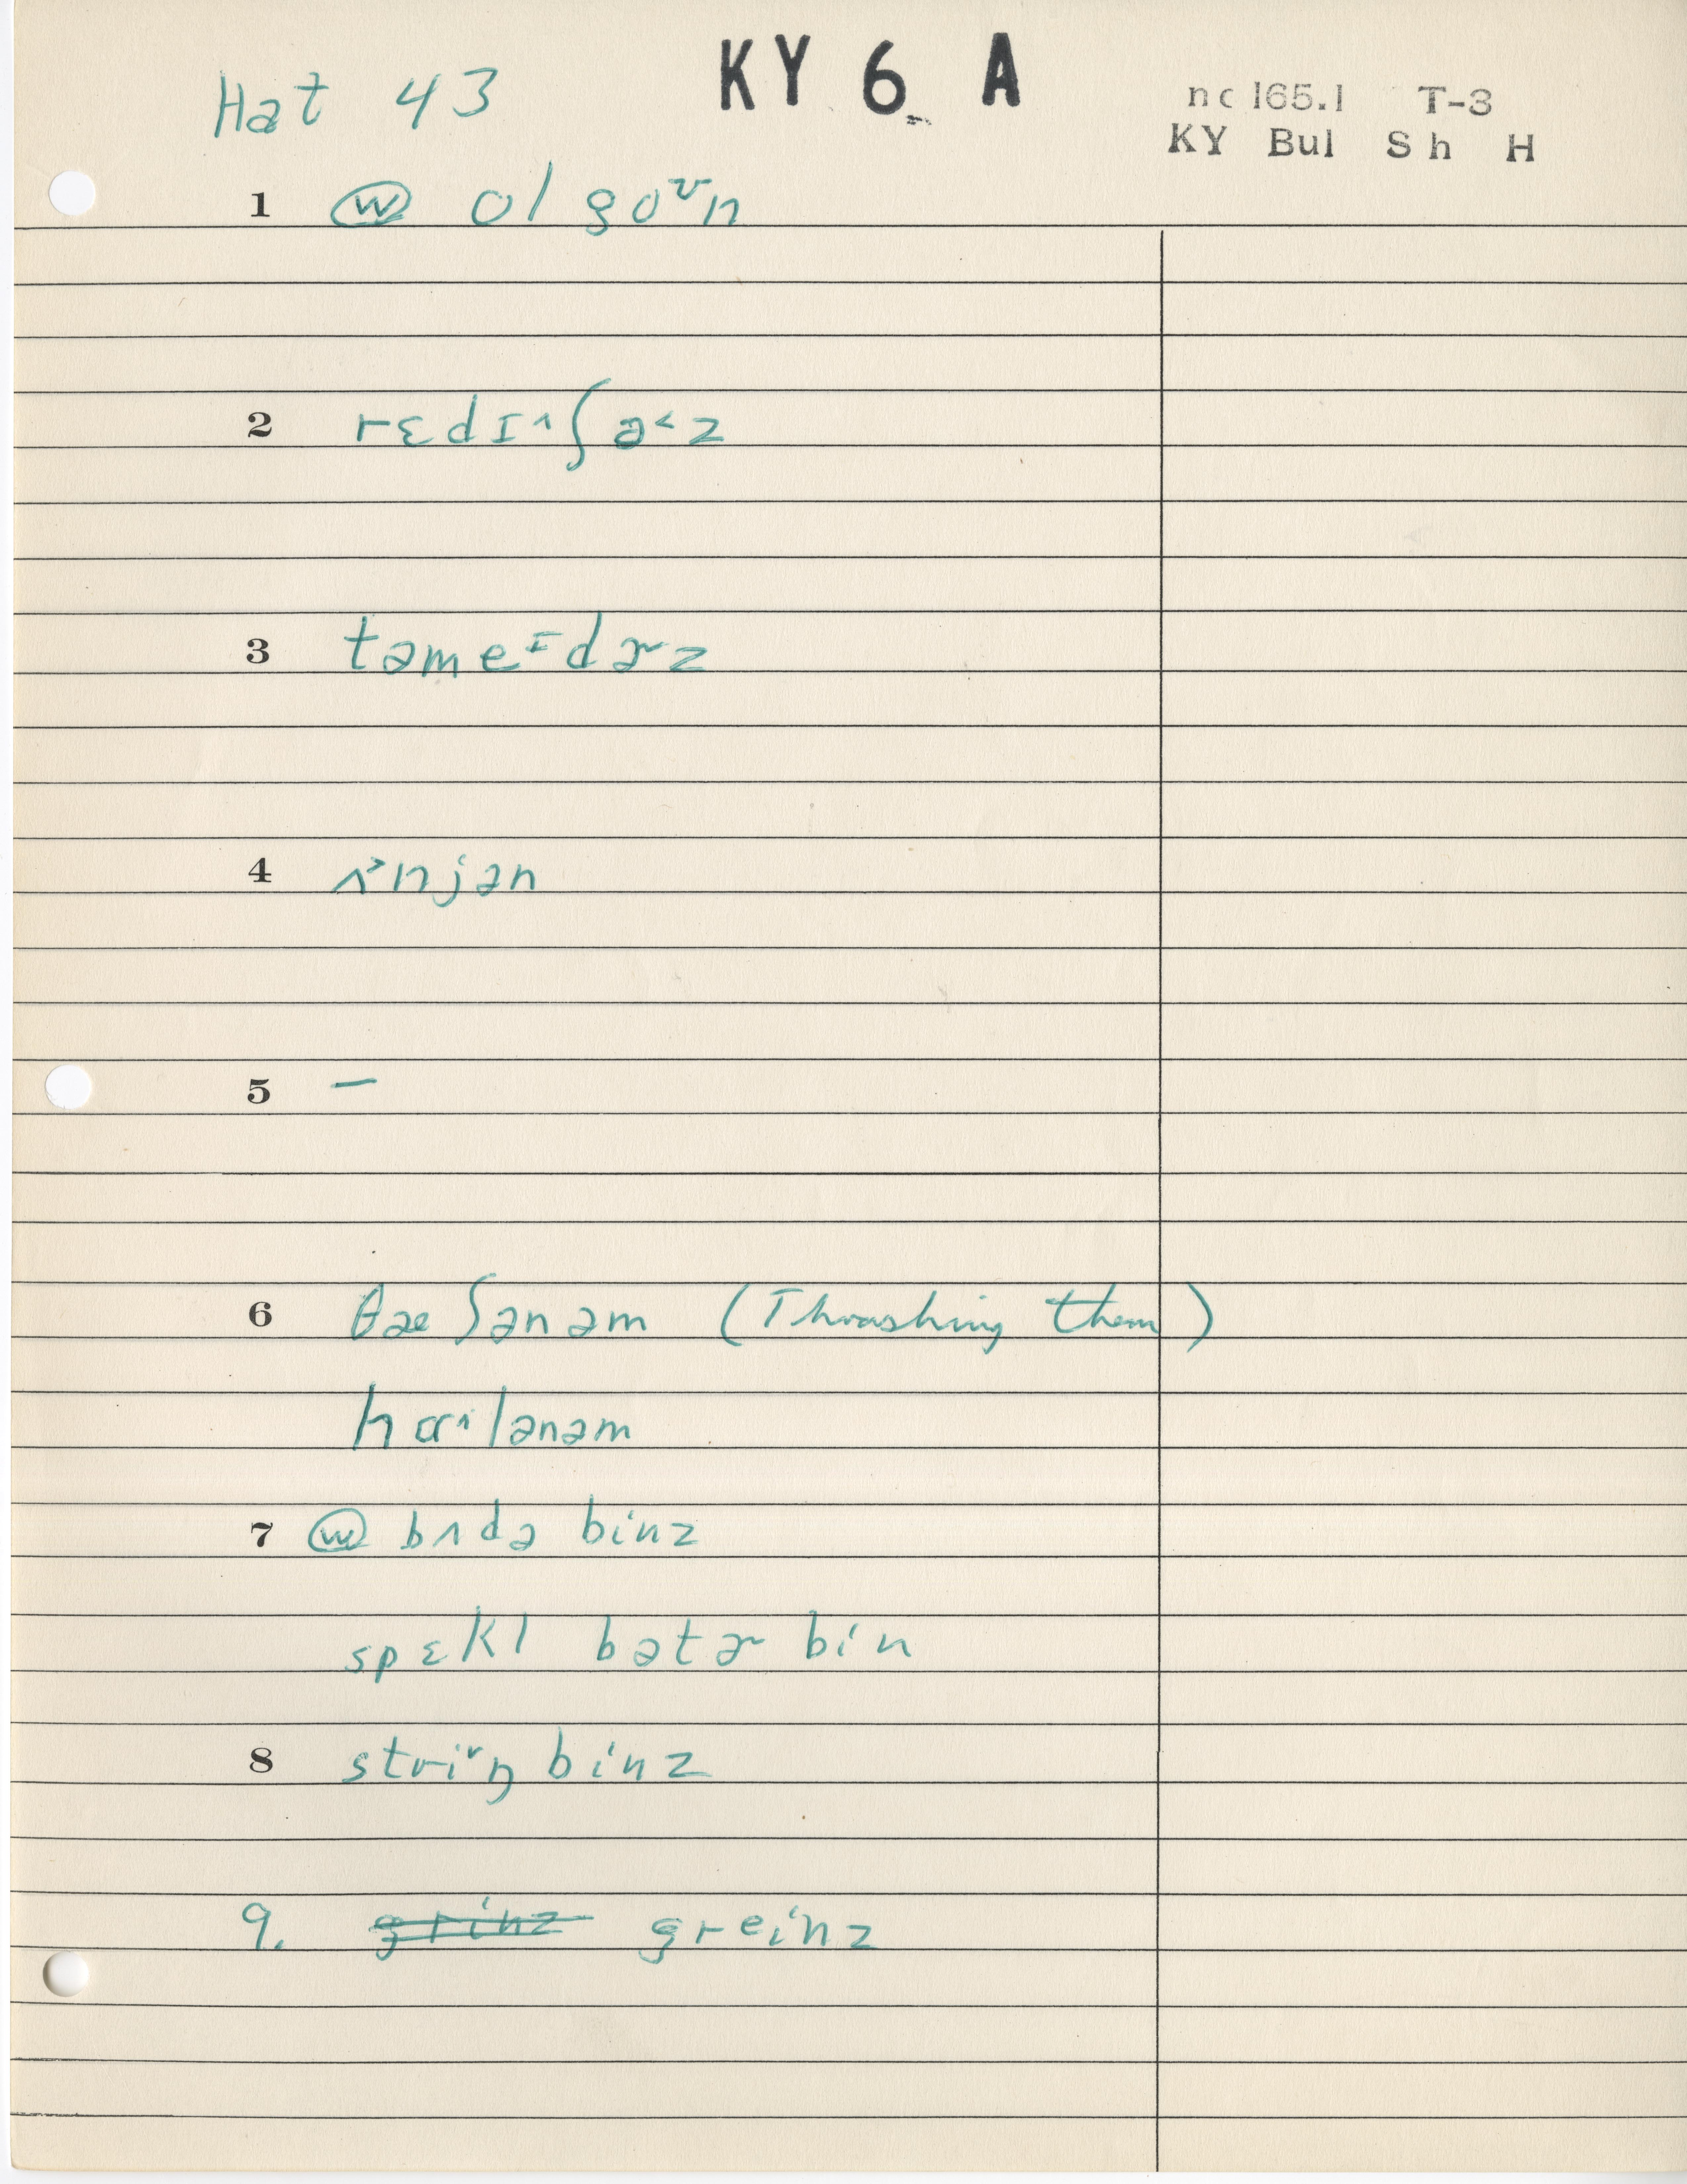 KY 6 A
Hat 43
nc 165.1 T-3
KY Bul Sh H
1 ⓦ ol goᶹn
2 rɛdɪ^ʃə˂z
3 təmeᶦdɚz
4 ʌ˃njən
5 —
6 θæʃənəm (Thrashing them)
hɑ^lənəm
7 ⓦ bʌdə binz
spɛkl bətɚ bin
8 stri˅ŋ binz
9. grinz greinz